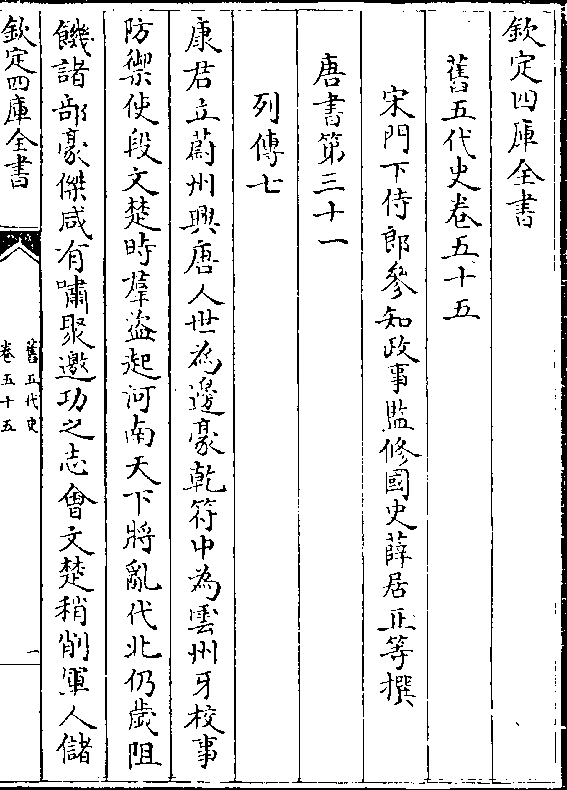 欽定四庫全書
舊五代史卷五十五
宋門下侍郎參知政事監修國史薛居正等撰
唐書第三十一
列傳七
康君立蔚州興唐人世為邊豪乾符中為雲州牙校事
防禦使段文楚時羣盜起河南天下將亂代北仍歲阻
饑諸部豪傑咸有嘯聚邀功之志會文楚稍削軍人儲
欽定四庫全書
舊五代史
卷五十五
一